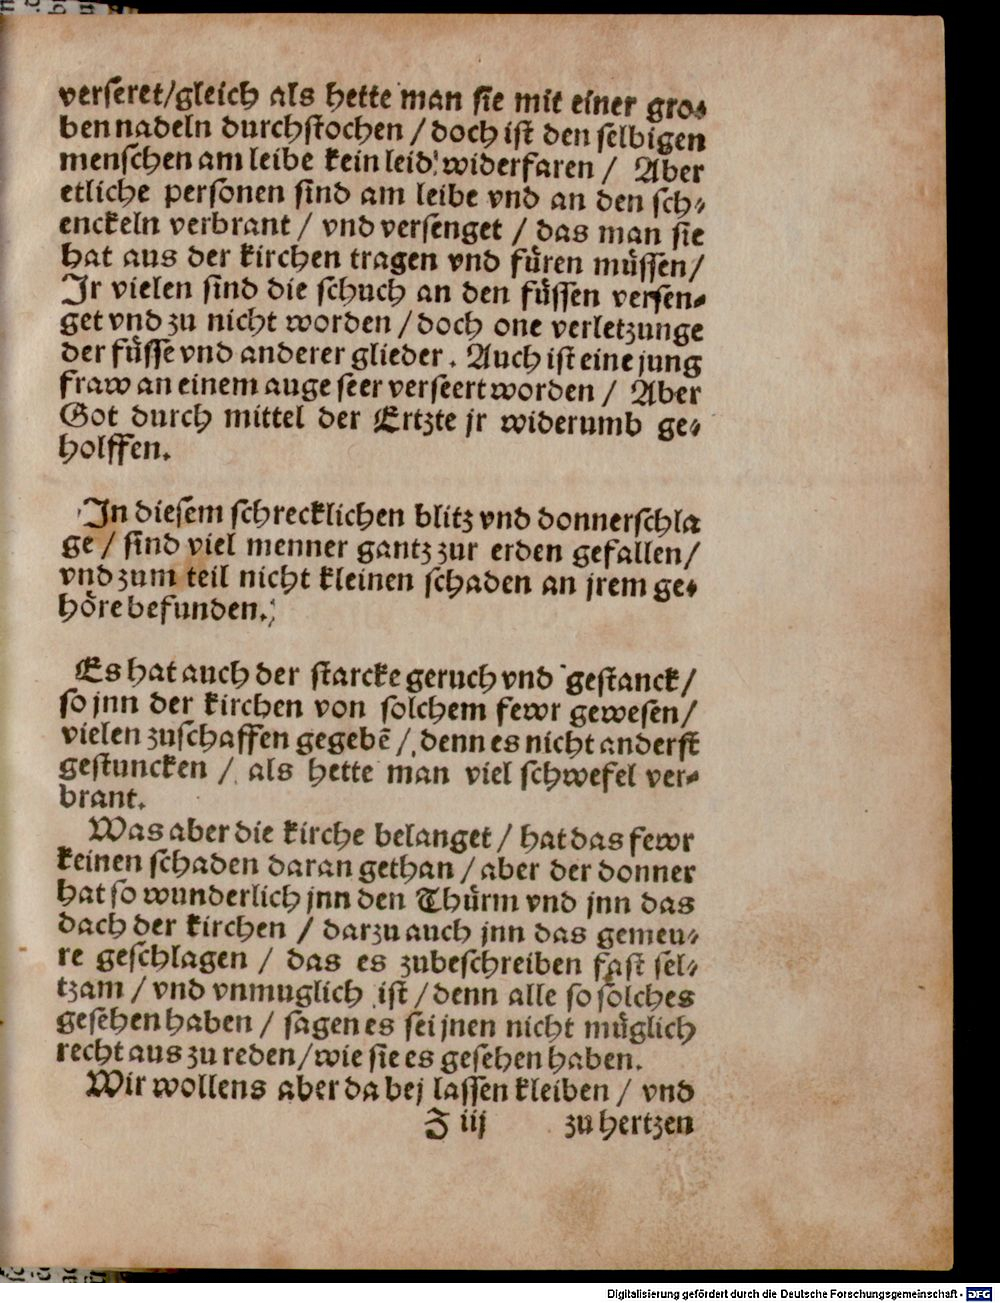 verseret/gleich als hette man sie mit einer gro⸗
ben nadeln durchstochen / doch ist den selbigen
menschen am leibe kein leid widerfaren / Aber
etliche personen sind am leibe vnd an den sch⸗
enckeln verbrant / vnd versenget / das man sie
hat aus der kirchen tragen vnd fuͤren muͤssen/
Jr vielen sind die schuch an den fuͤssen versen⸗
get vnd zu nicht worden / doch one verletzunge
der fuͤsse vnd anderer glieder. Auch ist eine jung
fraw an einem auge seer verseert worden / Aber
Got durch mittel der Ertzte jr widerumb ge⸗
holffen.
Jn diesem schrecklichen blitz vnd donnerschla
ge / sind viel menner gantz zur erden gefallen/
vnd zum teil nicht kleinen schaden an jrem ge⸗
hoͤre befunden.
Es hat auch der starcke geruch vnd gestanck/
so jnn der kirchen von solchem fewr gewesen/
vielen zuschaffen gegebē / denn es nicht anderst
gestuncken / als hette man viel schwefel ver⸗
brant.
Was aber die kirche belanget / hat das fewr
keinen schaden daran gethan / aber der donner
hat so wunderlich jnn den Thuͤrm vnd jnn das
dach der kirchen / darzu auch jnn das gemeu⸗
re geschlagen / das es zubeschreiben fast sel⸗
tzam / vnd vnmuglich ist / denn alle so solches
gesehen haben / sagen es sei jnen nicht muͤglich
recht aus zu reden/wie sie es gesehen haben.
Wir wollens aber da bej lassen kleiben / vnd
J iij zu hertzen
Digitalisierung gefördert durch die Deutsche Forschungsgemeinschaft - DFG